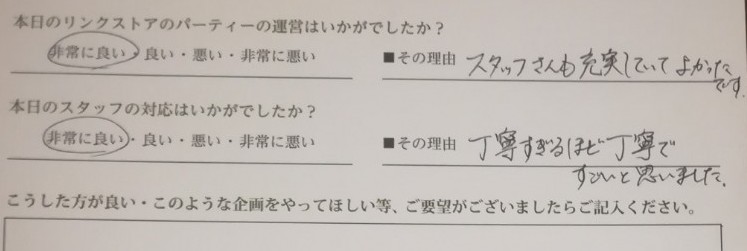 本日のリンクストアのパーティーの運営はいかがでしたか？
非常に良い・良い・悪い・非常に悪い ■その理由 スタッフさんも充実していてよかった
です.
本日のスタッフの対応はいかがでしたか？
非常に良い・良い・悪い・非常に悪い ■その理由 丁寧すぎるほど丁寧で
すごいと思いました.
こうした方が良い・このような企画をやってほしい等、ご要望がございましたらご記入ください。